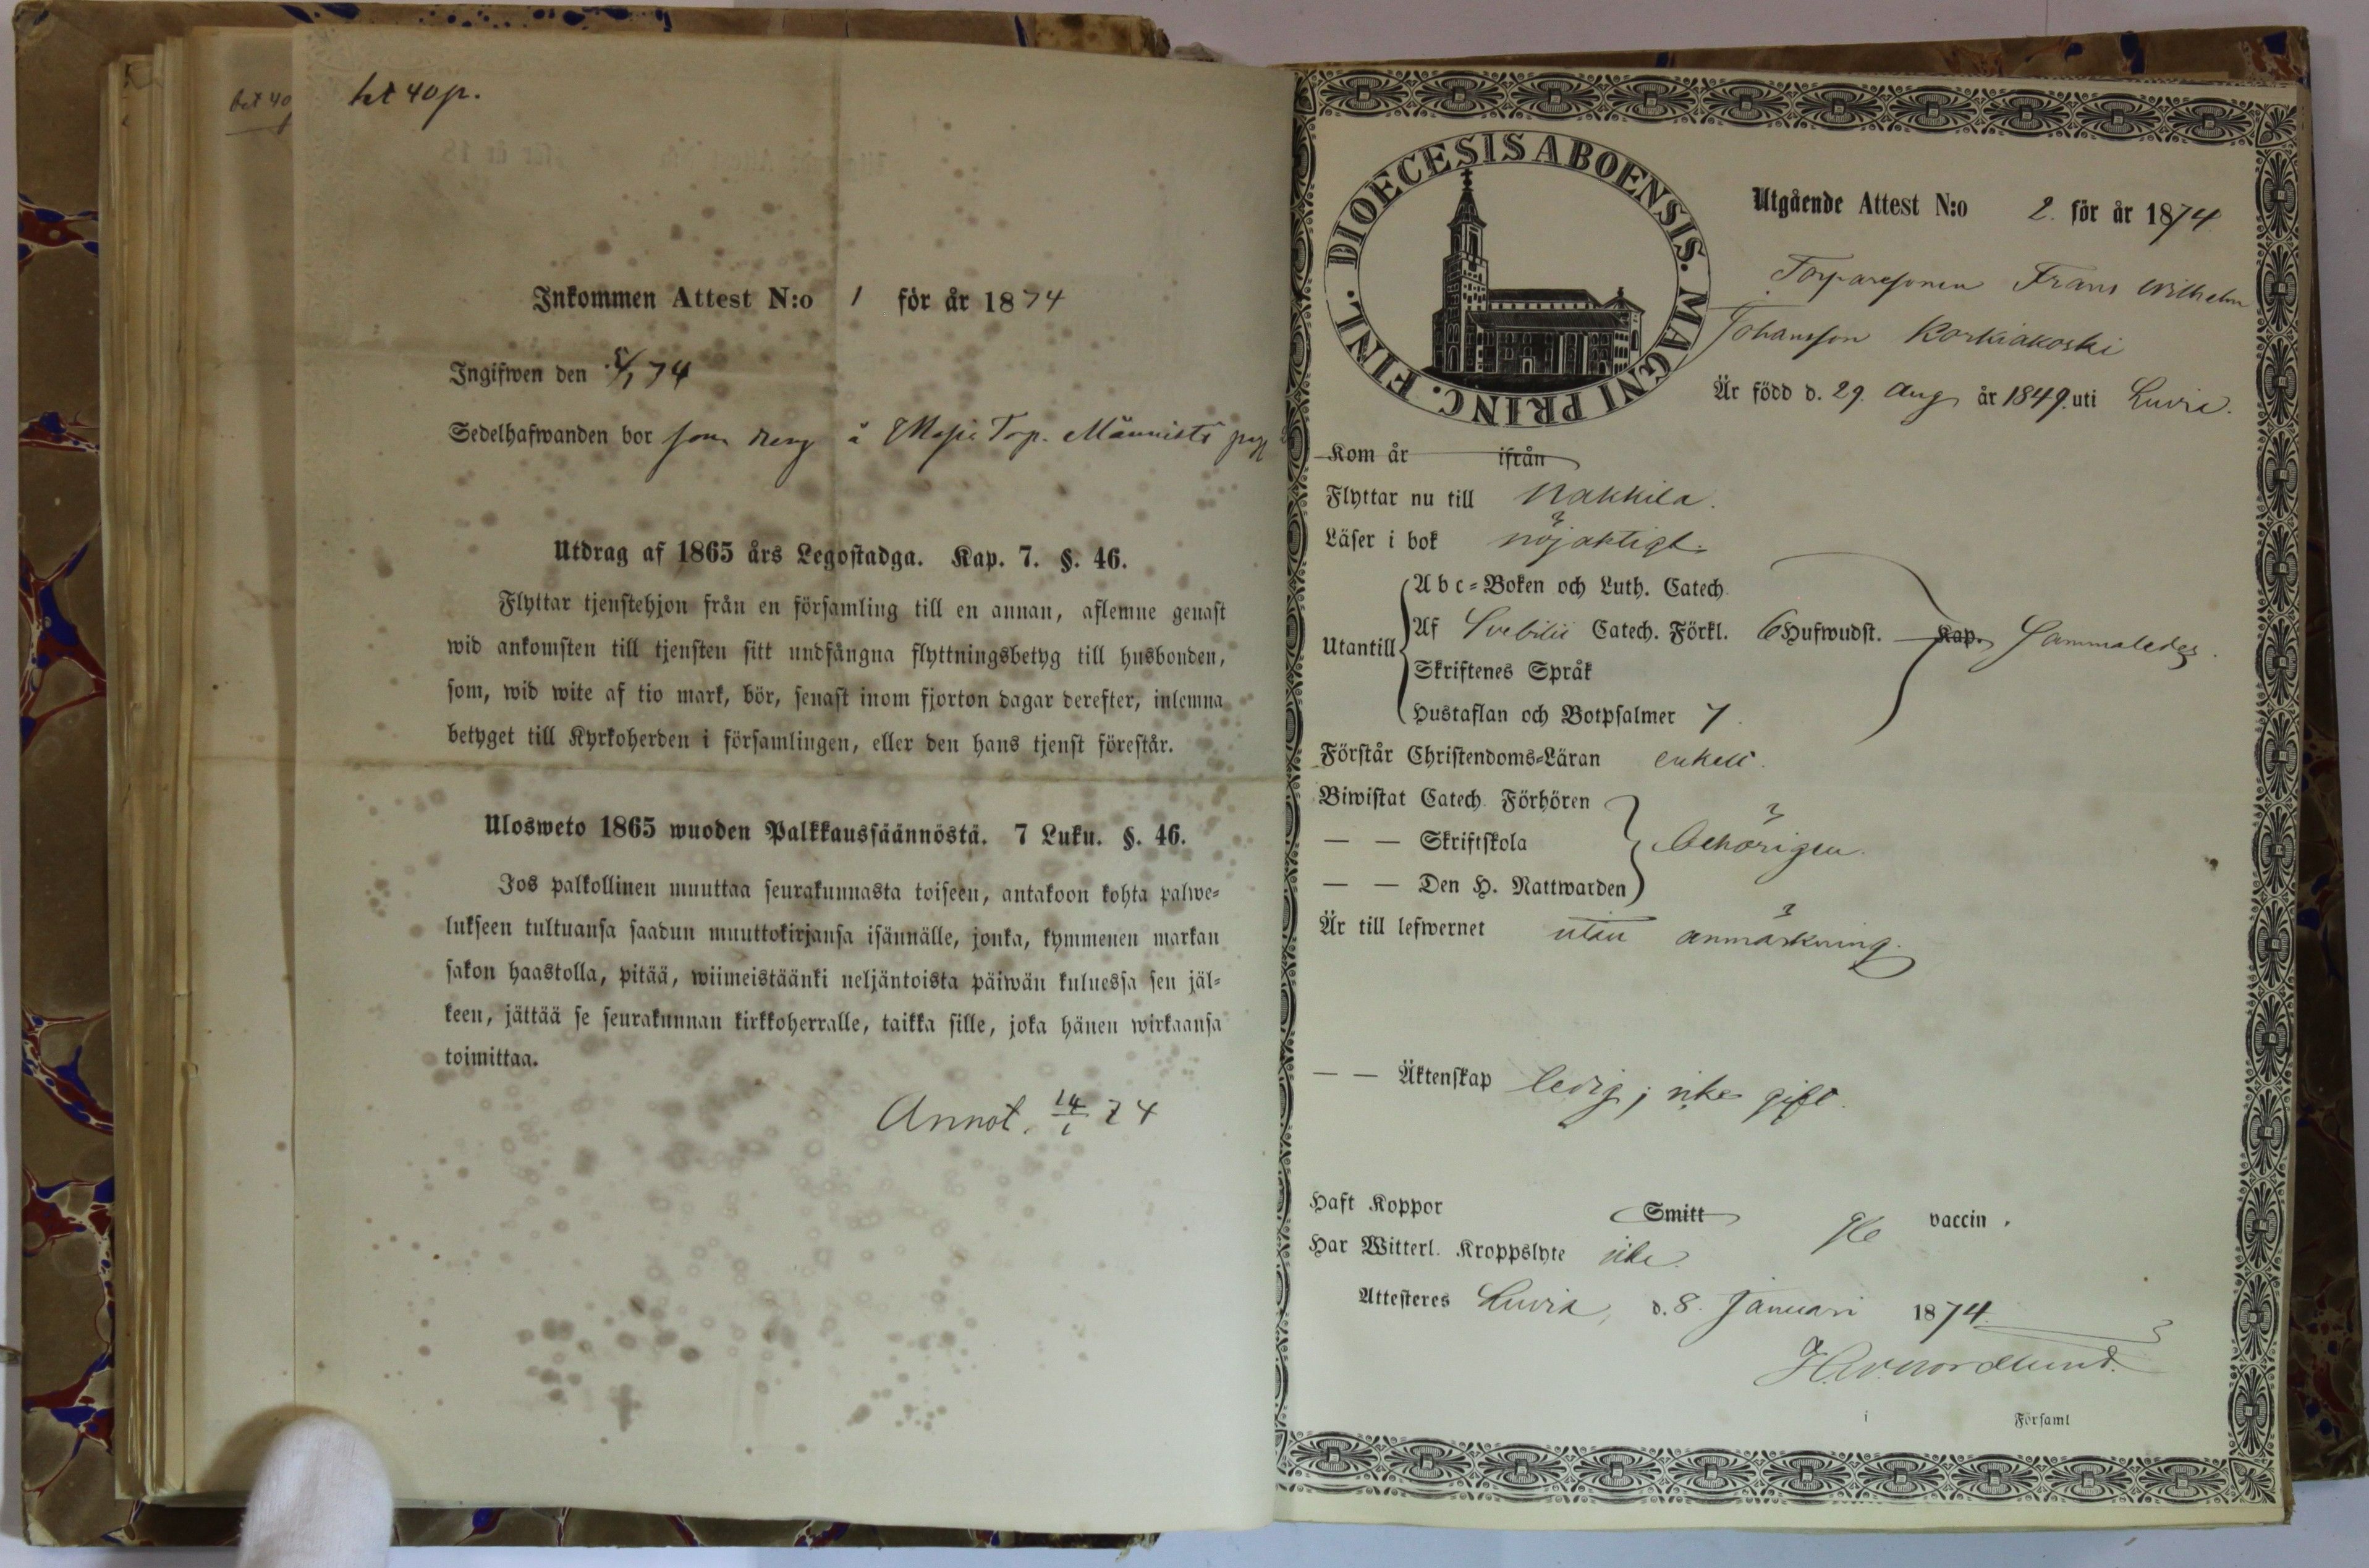 bet 40
bet 40 p.
Inkommen Attest N:o 1 för år 1874
Ingifwen den 5/1 74
Sedelhafwanden bor som dreng å Torp. Männistö
Utdrag af 1865 års Legostadga. Kap. 7. §. 46.
Flyttar tjenstehjon från en församling till en annan, aflemne genast
wid ankomsten till tjensten sitt undfångna flyttningsbetyg till husbonden,
som, wid wite af tio mark, bör, senast inom fjorton dagar derefter, inlemna
betyget till Kyrkoherden i församlingen, eller den hans tjenst förestår.
Ulosweto 1865 wuoden Palkkaussäännöstä. 7 Luku. §. 46.
Jos palkollinen muuttaa seurakunnasta toiseen, antakoon kohta palwe=
lukseen tultuansa saadun muuttokirjansa isännälle, jonka, kymmenen markan
sakon haastolla, pitää, wiimeistäänki neljäntoista päiwän kuluessa sen jäl=
keen, jättää se seurakunnan kirkkoherralle, taikka sille, joka hänen wirkaansa
toimittaa.
Annot. 14/1 74
DIOECESIS ABOENSIS. MAGNI PRINC. FINL.
Utgående Attest N:o 2. för år 1874
Torparesonen Frans Wilhelm
Johansson Korkiakoski
Är född d. 29. Aug år 1849. uti Luvia.
Kom år ifrån
Flyttar nu till Nakkila.
Läser i bok nöjaktigt.
Abc=Boken och Luth. Catech.
Utantill Af Svebilii Catech. Förkl. 6 Hufwudst. Kap. Sammaledes.
Skriftenes Språk
Hustaflan och Botpsalmer 7.
Förstår Christendoms=Läran enkelt.
Biwistat Catech. Förhören
— — Skriftskola behörigen.
— — Den H. Nattwarden
Är till lefwernet utan anmärkning.
— — Äktenskap ledig; icke gift.
Haft Koppor Smitt vaccin.
Har Witterl. Kroppslyte icke.
Attesteres Luvia, d. 8. Januari 1874.
Nordlund.
i Församl